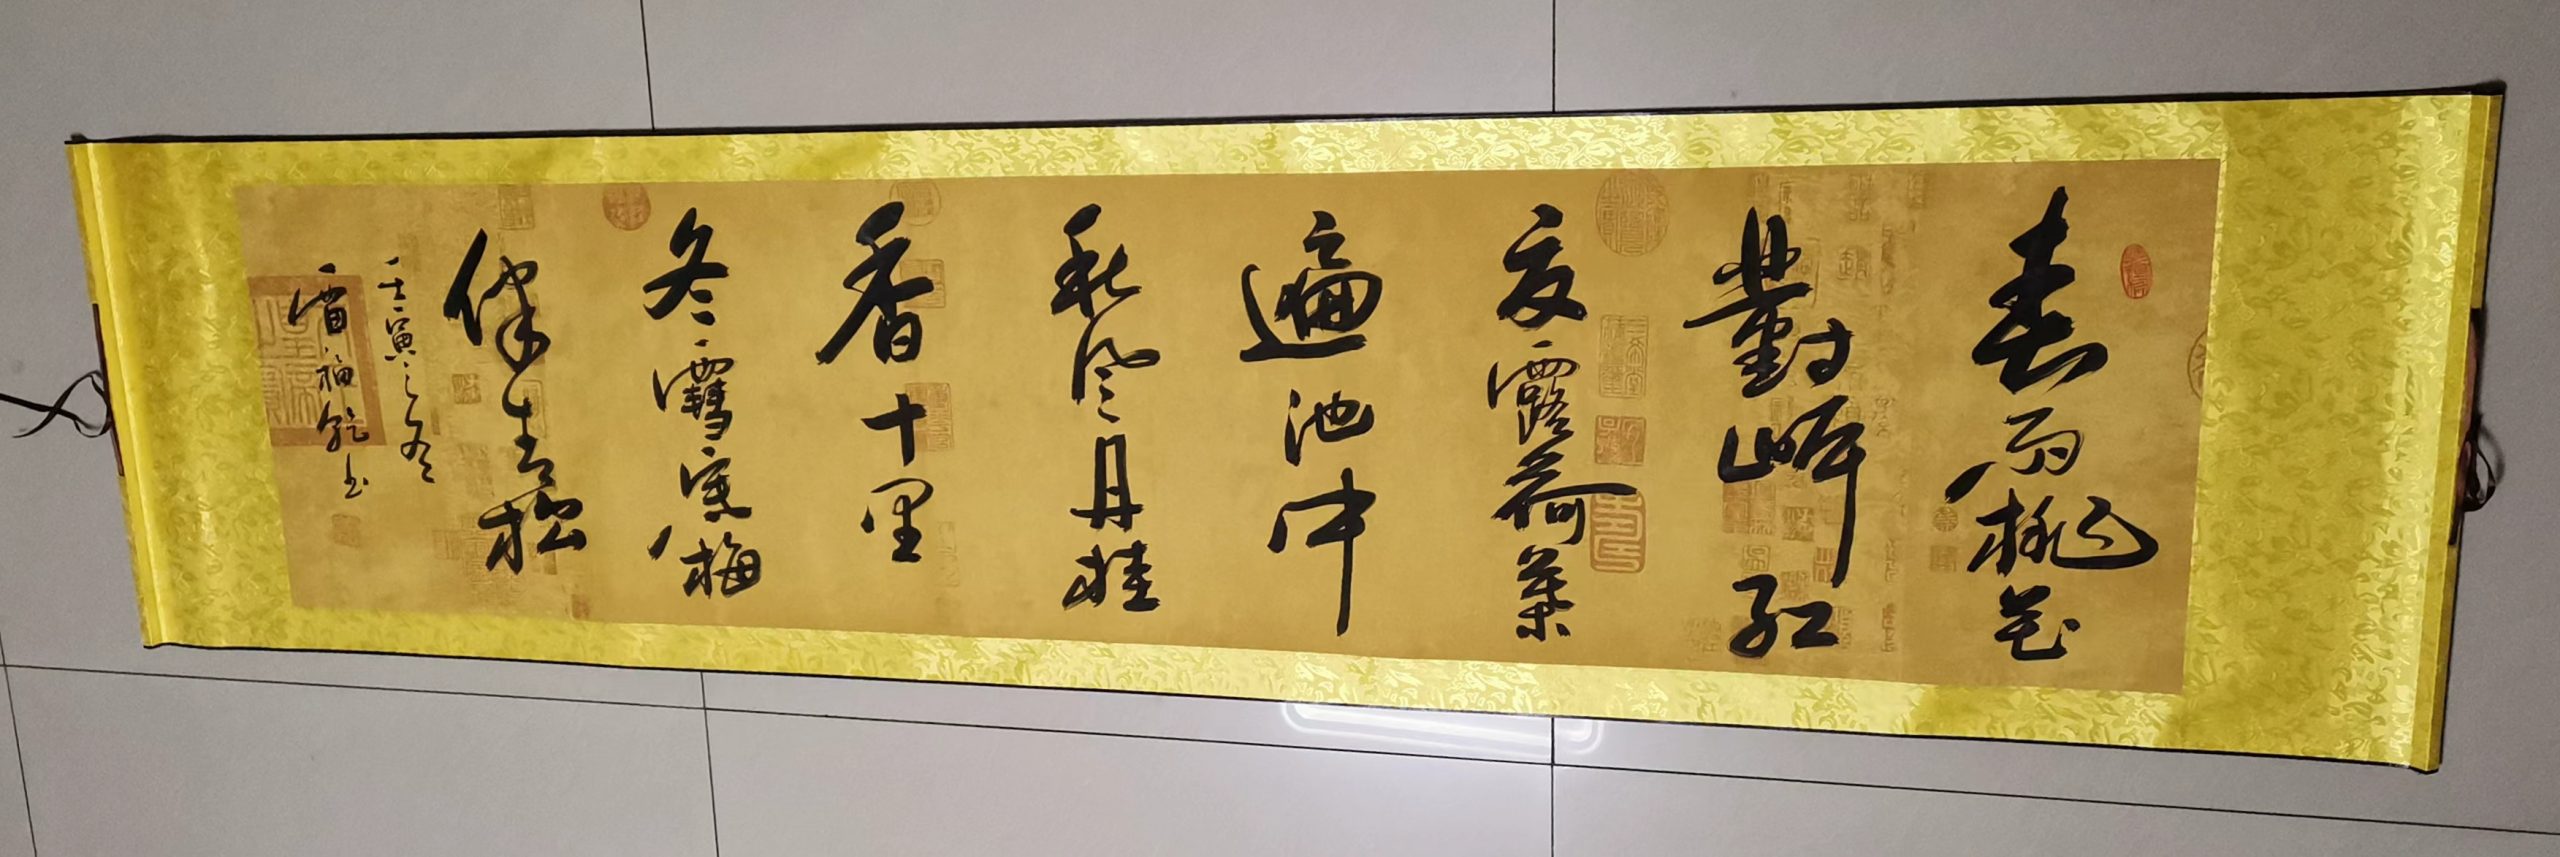 春雨桃花
對岸紅
夏露荷葉
遍池中
秋風丹桂
香十里
冬雪寒梅
伴青松
壬寅之冬
雷福乾书